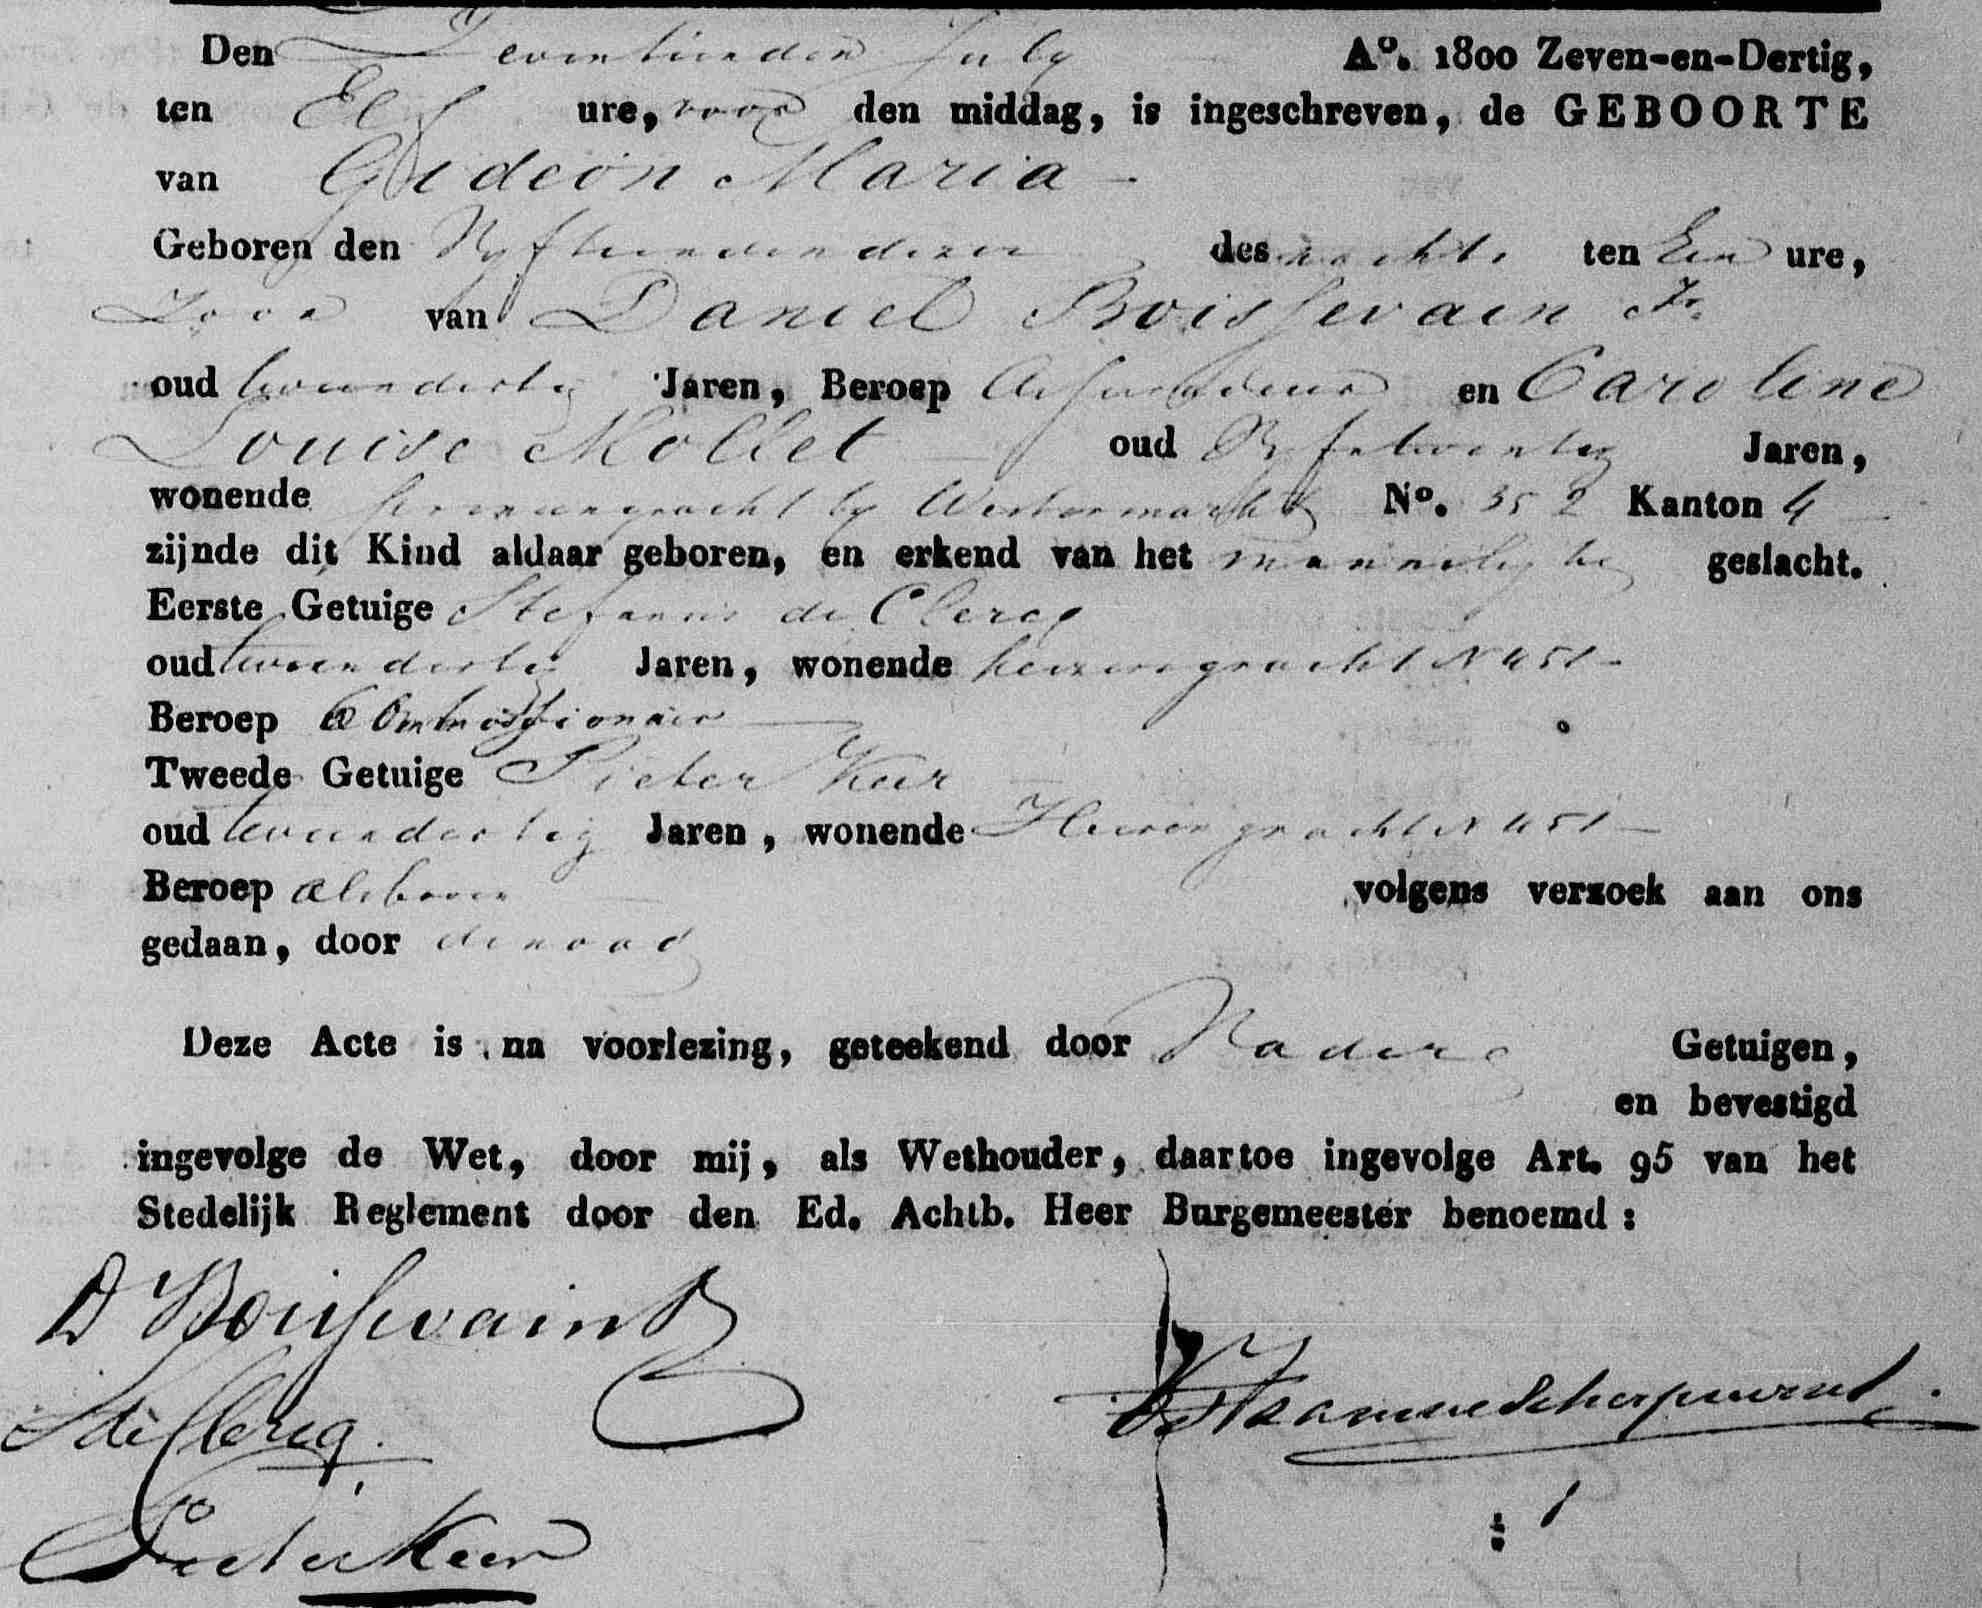 Den Zeventienden July A°. 1800 Zeven-en-Dertig,
ten Elf ure, voor den middag, is ingeschreven, de GEBOORTE
van Gideon Maria
Geboren den Vyftienden dezer des nachts ten Een ure,
Zoon van Daniel Boissevain Jr.
oud tweendertig Jaren, Beroep Assuradeur en Caroline
Louise Mollet oud Vyfentwentig Jaren,
wonende Heerengracht by Westermarkt N°. 352 Kanton 4
zijnde dit Kind aldaar geboren, en erkend van het mannelyke geslacht.
Eerste Getuige Stefanus de Clercq
oud tweendertig Jaren, wonende keizersgracht N 451
Beroep Commissionair
Tweede Getuige Pieter Keer
oud tweendertig Jaren, wonende Heerengracht N 451
Beroep als boven volgens verzoek aan ons
gedaan, door den vader
Deze Acte is na voorlezing, geteekend door Vader & Getuigen,
en bevestigd
ingevolge de Wet, door mij, als Wethouder, daartoe ingevolge Art. 95 van het
Stedelijk Reglement door den Ed. Achtb. Heer Burgemeester benoemd:
D Boissevain Jr
S de Clercq
Pieter Keer